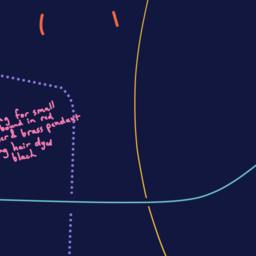 for small
bound in red
& brass pendant
hair dyed
black